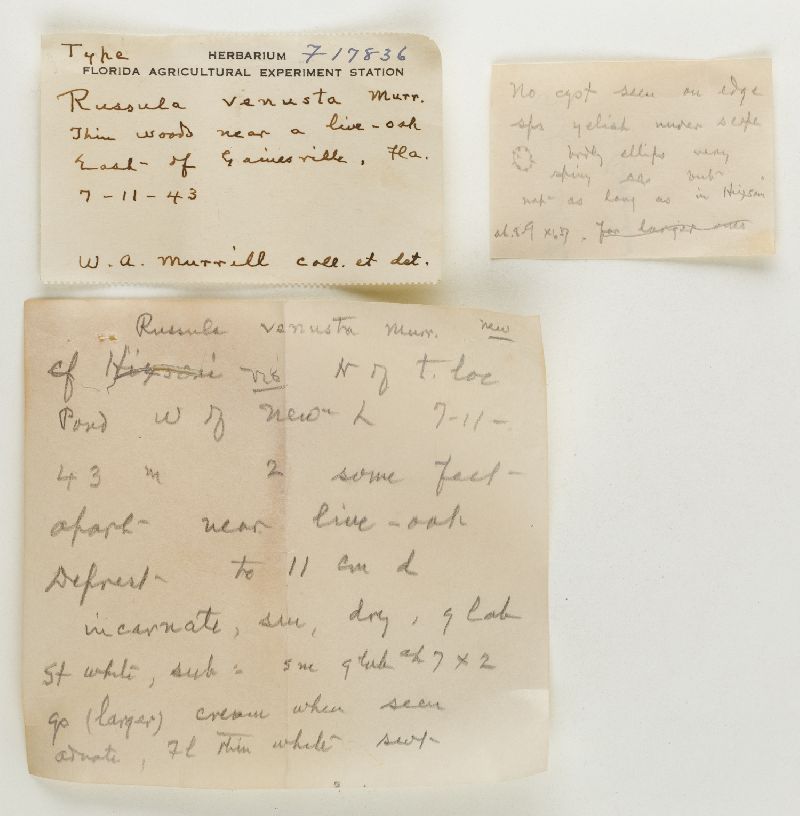 Type HERBARIUM F 17836
FLORIDA AGRICULTURAL EXPERIMENT STATION
Russula venusta Murr.
Thin woods near a live-oak
East of Gainesville, Fla.
7-11-43
W. A. Murrill coll. et det.
No cyst seen on edge
sps yelish under scope
brdly ellips very
spiny sps but
not as long as in Hixsoni
for larger ones
Russula venusta Murr. new
cf Hixsoni N of t. loc
Pond W of Newn L 7-11-
43 m 2 some feet
apart near live-oak
Deprest to 11 cm d
incarnate, sm, dry, glab
St white, sub = sm glab 7 x 2
gs (larger) cream when seen
adnate, Fl thin white swt